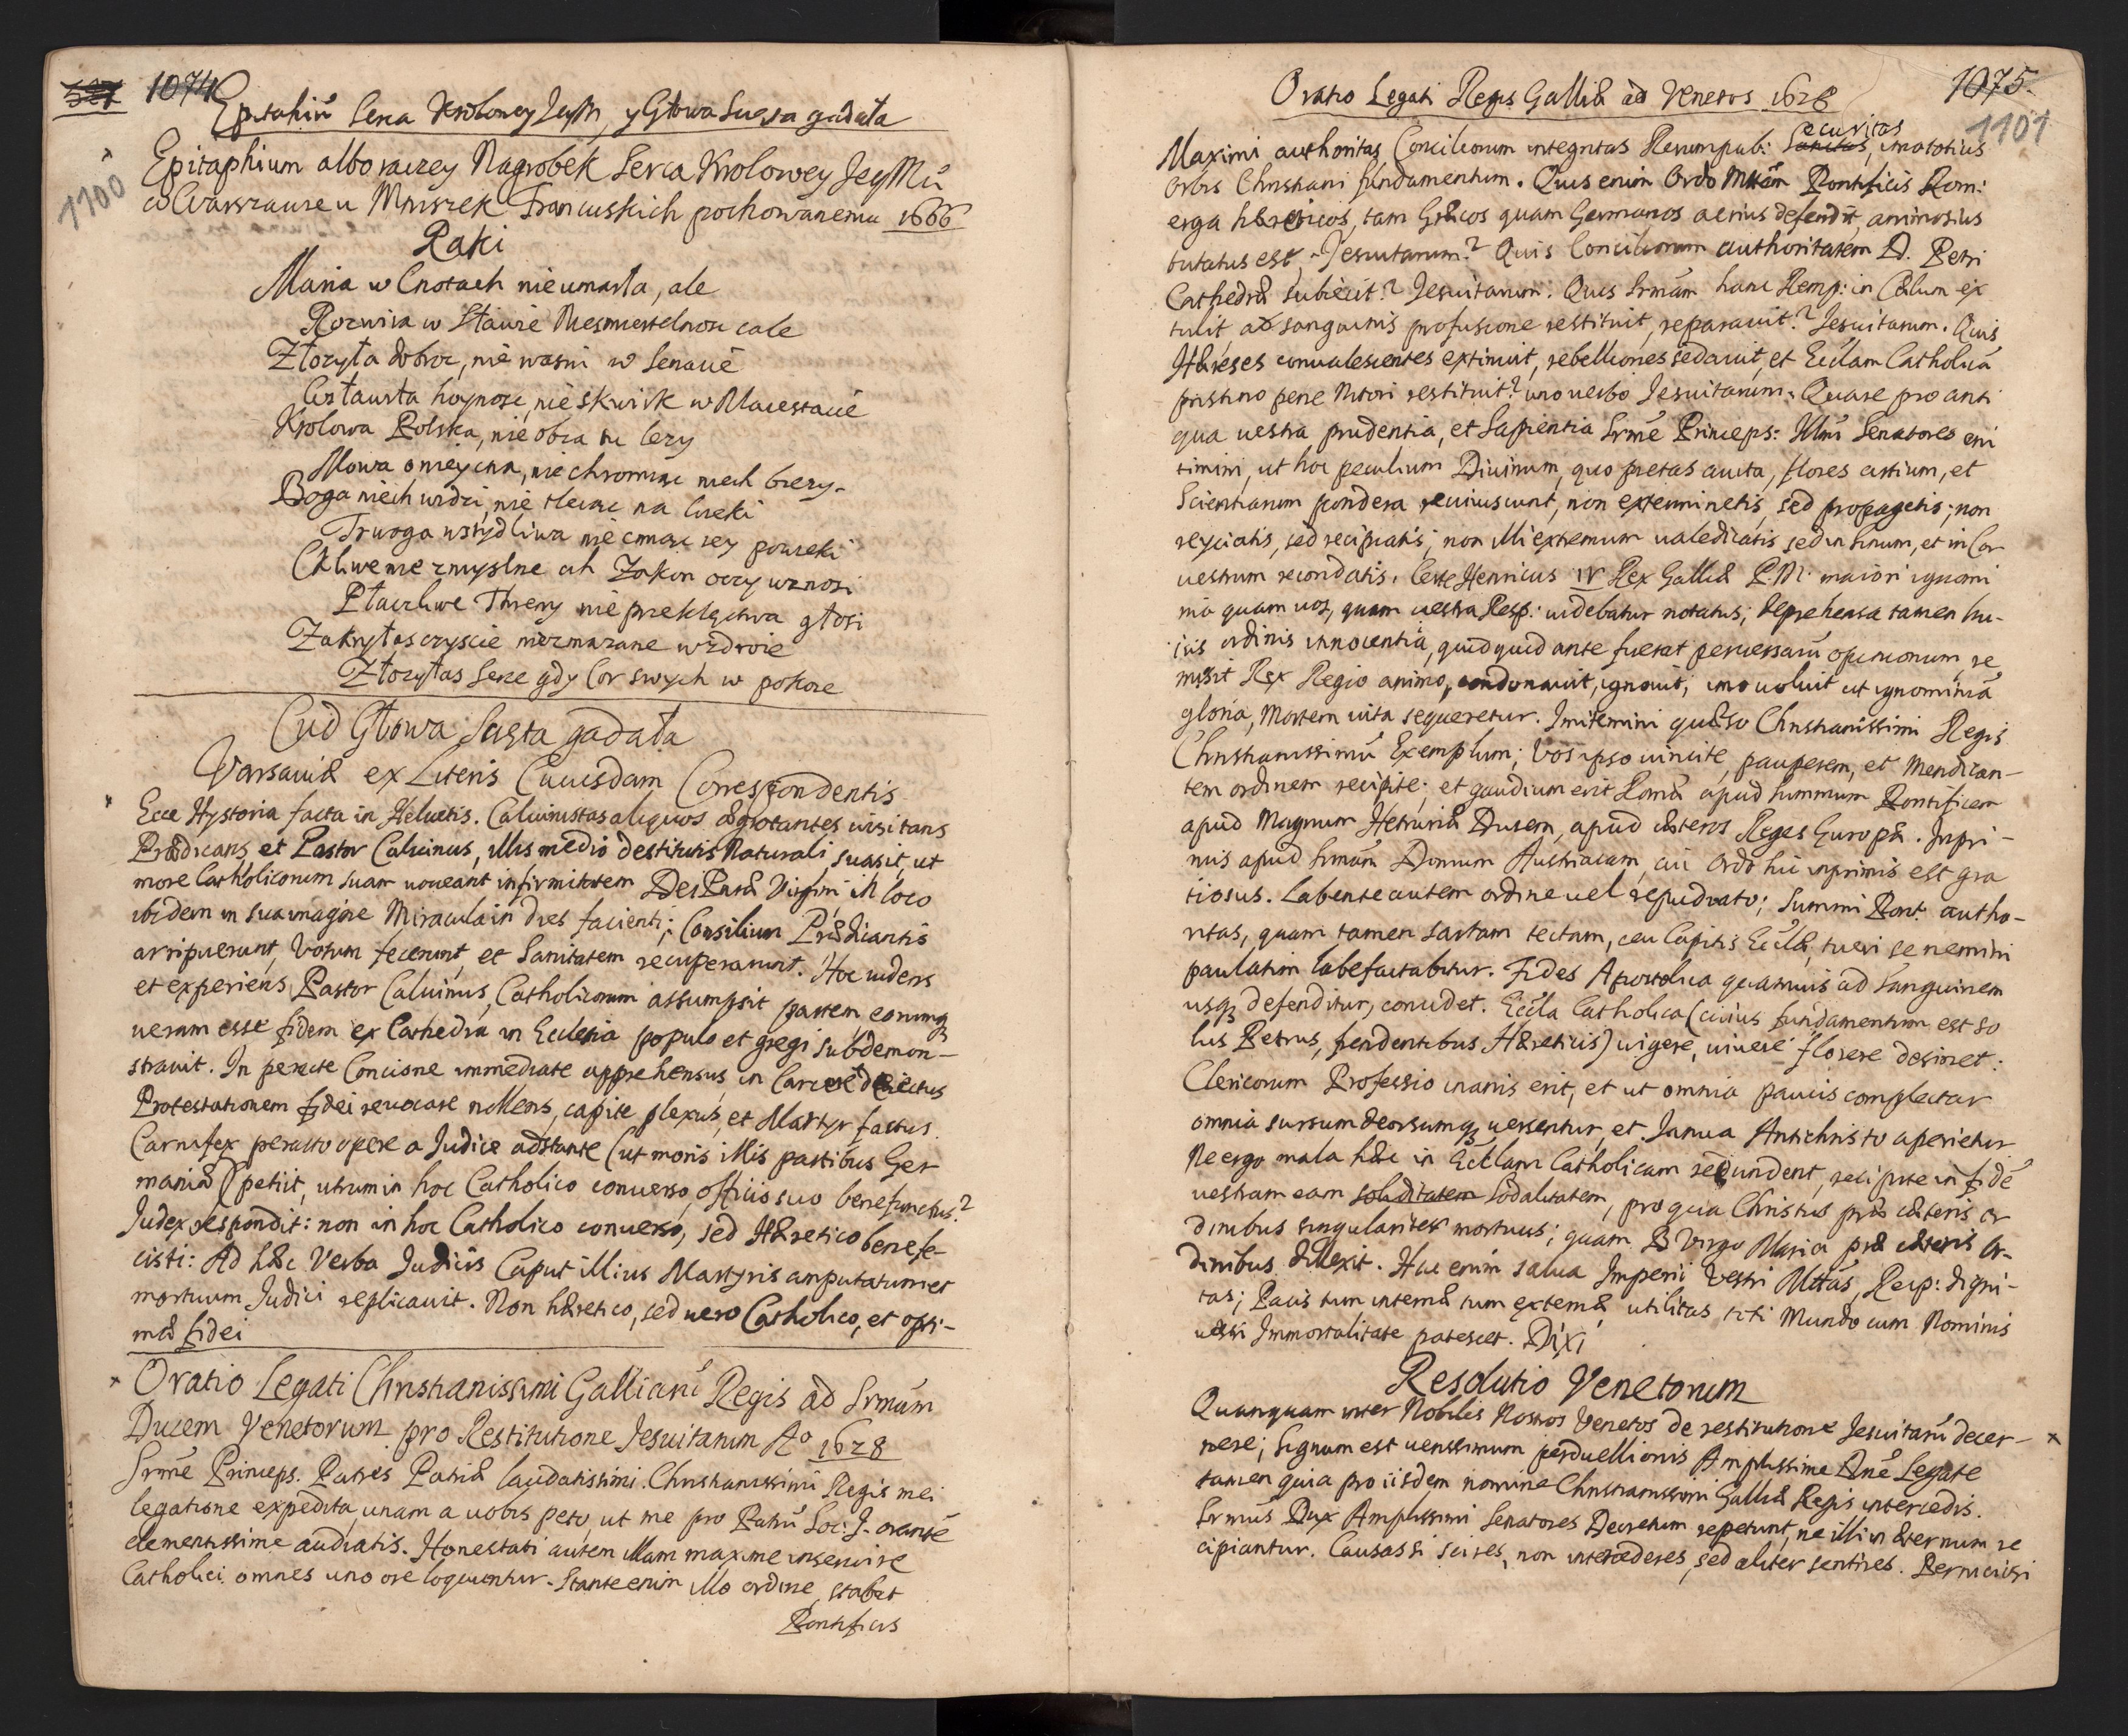 1074
Epitahiũ Serca Krolowey JeyM, y Głowa Sucsa gadała
1100
Epitaphium albo raczey Nagrobek Serca Krolowey JeyMci
w Warszawie u Mniszek Francuskich pochowanemu 1666
Taki
Maria w Cnotach nie umarła, ale
Rozwiia w Sławie Niesmiertelnosc cale
Złozyła dobroc, nie wasni w Senacie
Zostawiła hoynosc, nie skwirk w Maiestacie
Krolowa Polska, nie obca tu lezy
Mowa omeyczna, nie chromiac niech biezy
Boga niech widzi, nie tleiac na wieki
Trwoga wstydliwa nie cmiac iey powieki
Chliwe niezmyslne ah Zakon oczy wznosi
Płaczliwe Threny nie przeklęctwa głosi
Zakryłas czyscie niezmazane w zdroie
Złozyłas Serce gdy Cor swych w pokoie
Cud Głowa Scięta gadała
Varsaviæ ex Literis Cuiusdam Correspondentis
Ecce Hystoria facta in Helvetis. Calvinistas aliquos ægrotantes visitans
Prædicans, et Pastor Calvinus, illis medio destitutis Naturali, suasit, ut
more Catholicorum suam voveant infirmitatem Dei Paræ Virgini in loco
ibidem in sua imagine Miracula in dies facienti; Consilium Prædicantis
arripuerunt, Votum fecerunt, et Sanitatem recuperarunt. Hoc videns
et experiens Pastor Calvinus, Catholicorum assumpsit partem, eorumq3
veram esse fidem ex Cathedra in Ecclesia populo et gregi subdemon-
stravit. In peracte Concione immediate apprehensus, in Carcere deiectus
Protestationem fidei revocare nollens, capite plexus, et Martyr factus.
Carnifex peracto opere a Judice adstante (ut moris illis partibus Ger
maniæ) petiit, utrum in hoc Catholico converso, officio suo benefunctus?
Judex respondit: non in hoc Catholico converso, sed Hæretico benefe-
cisti: Ad hæc Verba Judicis Caput illius Martyris amputatum et
mortuum Judici replicavit. Non hæretico, sed vero Catholico, et opti-
mæ fidei
Oratio Legati Christianissimi Galliarũ Regis ad Srmũm
Ducem Venetorum pro Restitutione Jesuitarum Aº 1628
Srme Princeps. Patres Patriæ laudatissimi. Christianissimi Regis mei
legatione expedita, unam a vobis peto, ut me pro Patrũ Soc: J. orantẽ
clementissime audiatis. Honestati autem illam maxime inservire
Catholici omnes uno ore loquuntur. Stante enim illo ordine, stabit
Pontificis
Oratio Legati Regis Galliæ ad Venetos 1628
1075
1101
Maximi authoritas, Conciliorum integritas Rerumpub: Securitas, imo totius
Orbis Christiani fundamentum. Quis enim Ordo Mttẽm Pontificis Rom:
erga hæreticos, tam Græcos quam Germanos acrius defendit, animosius
tutatus est, Jesuitarum? Quis Conciliorum authoritatem D. Petri
Cathedræ subiecit? Jesuitarum. Quis Srmãm hanc Remp: in Cælum ex
tulit, ab sanguinis profusione restituit, reparavit? Jesuitarum. Quis
Hæreses convalescentes extinxit, rebelliones sedavit, et Ecclam Catholicã
pristino pene Nitori restituit? uno verbo Jesuitarum. Quare pro anti
qua vestra prudentia, et Sapientia Srme Princeps: Illmi Senatores eni
timini, ut hoc peculium Divinum, quo pietas aucta, flores artium, et
Scientiarum pondera reviviscunt, non exterminetis, sed propagetis; non
reyciatis, sed recipiatis; non illi extremum valedicatis, sed in sinum, et in Cor
vestrum recondatis. Certe Henricus IV Rex Galliæ P.M. maiori ignomi
nia quam vos, quam vestra Resp: videbatur notatus; deprehensa tamen hu-
ius ordinis innocentia, quidquid ante fuerat perversarũ opinionum, re
misit Rex Regio animo, condonavit, ignovit, imo voluit ut ignominiã
gloria, Mortem vita sequeretur. Imitemini quæso Christianissimi Regis
Christianissimũ Exemplum; Vos ipso vincite, pauperem, et Mendican-
tem ordinem recipite; et gaudium erit Romæ apud summum Pontificem
apud Magnum Hetruriæ Ducem, apud cæteros Reges Europæ. Inpri-
mis apud Srmãm Domum Austriacam, cui Ordo hic inprimis est gra
tiosus. Labente autem ordine vel repudiato; Summi Pont. autho-
ritas, quam tamen sartam tectam, ceu Capitis Ecclæ, tueri se nemini
paulatim labefactabitur. Fides Apostolica quamvis ad Sanguinem
usq3 defenditur, concidet. Eccla Catholica (cuius fundamentum est so
lus Petrus, fendentibus Hæreticis) vigere, vivere florere desinet:
Clericorum Professio inanis erit, et ut omnia paucis complectar
omnia sursum deorsumq3 versentur, et Janua Antichristo aperietur
Ne ergo mala hæc in Ecclam Catholicam redundent, recipite in fidẽ
vestram eam soliditatem Sodalitatem, pro qua Christus præ cæteris or
dinibus singulariter mortuus; quam B Virgo Maria præ cæteris Or-
dinibus dilexit. Hac enim salva Imperii Vestri Mttas, Reip: digni-
tas; Pacis tum internæ tum externæ utilitas toti Mundo cum Nominis
vestri Immortalitate patescet. Dixi
Resolutio Venetorum
Quanquam inter Nobiles Nostros Venetos de restitutione Jesuitarũ decer-
nere; Signum est verissimum perduellionis Amplissime Dne Legate
tamen quia pro iisdem nomine Christianissimi Galliæ Regis intercedis.
Srmus Dux Amplissimi Senatores Decretum repetunt, ne illi in æternum re
cipiantur. Causas si scires, non intercederes, sed aliter sentires. Perniciosi